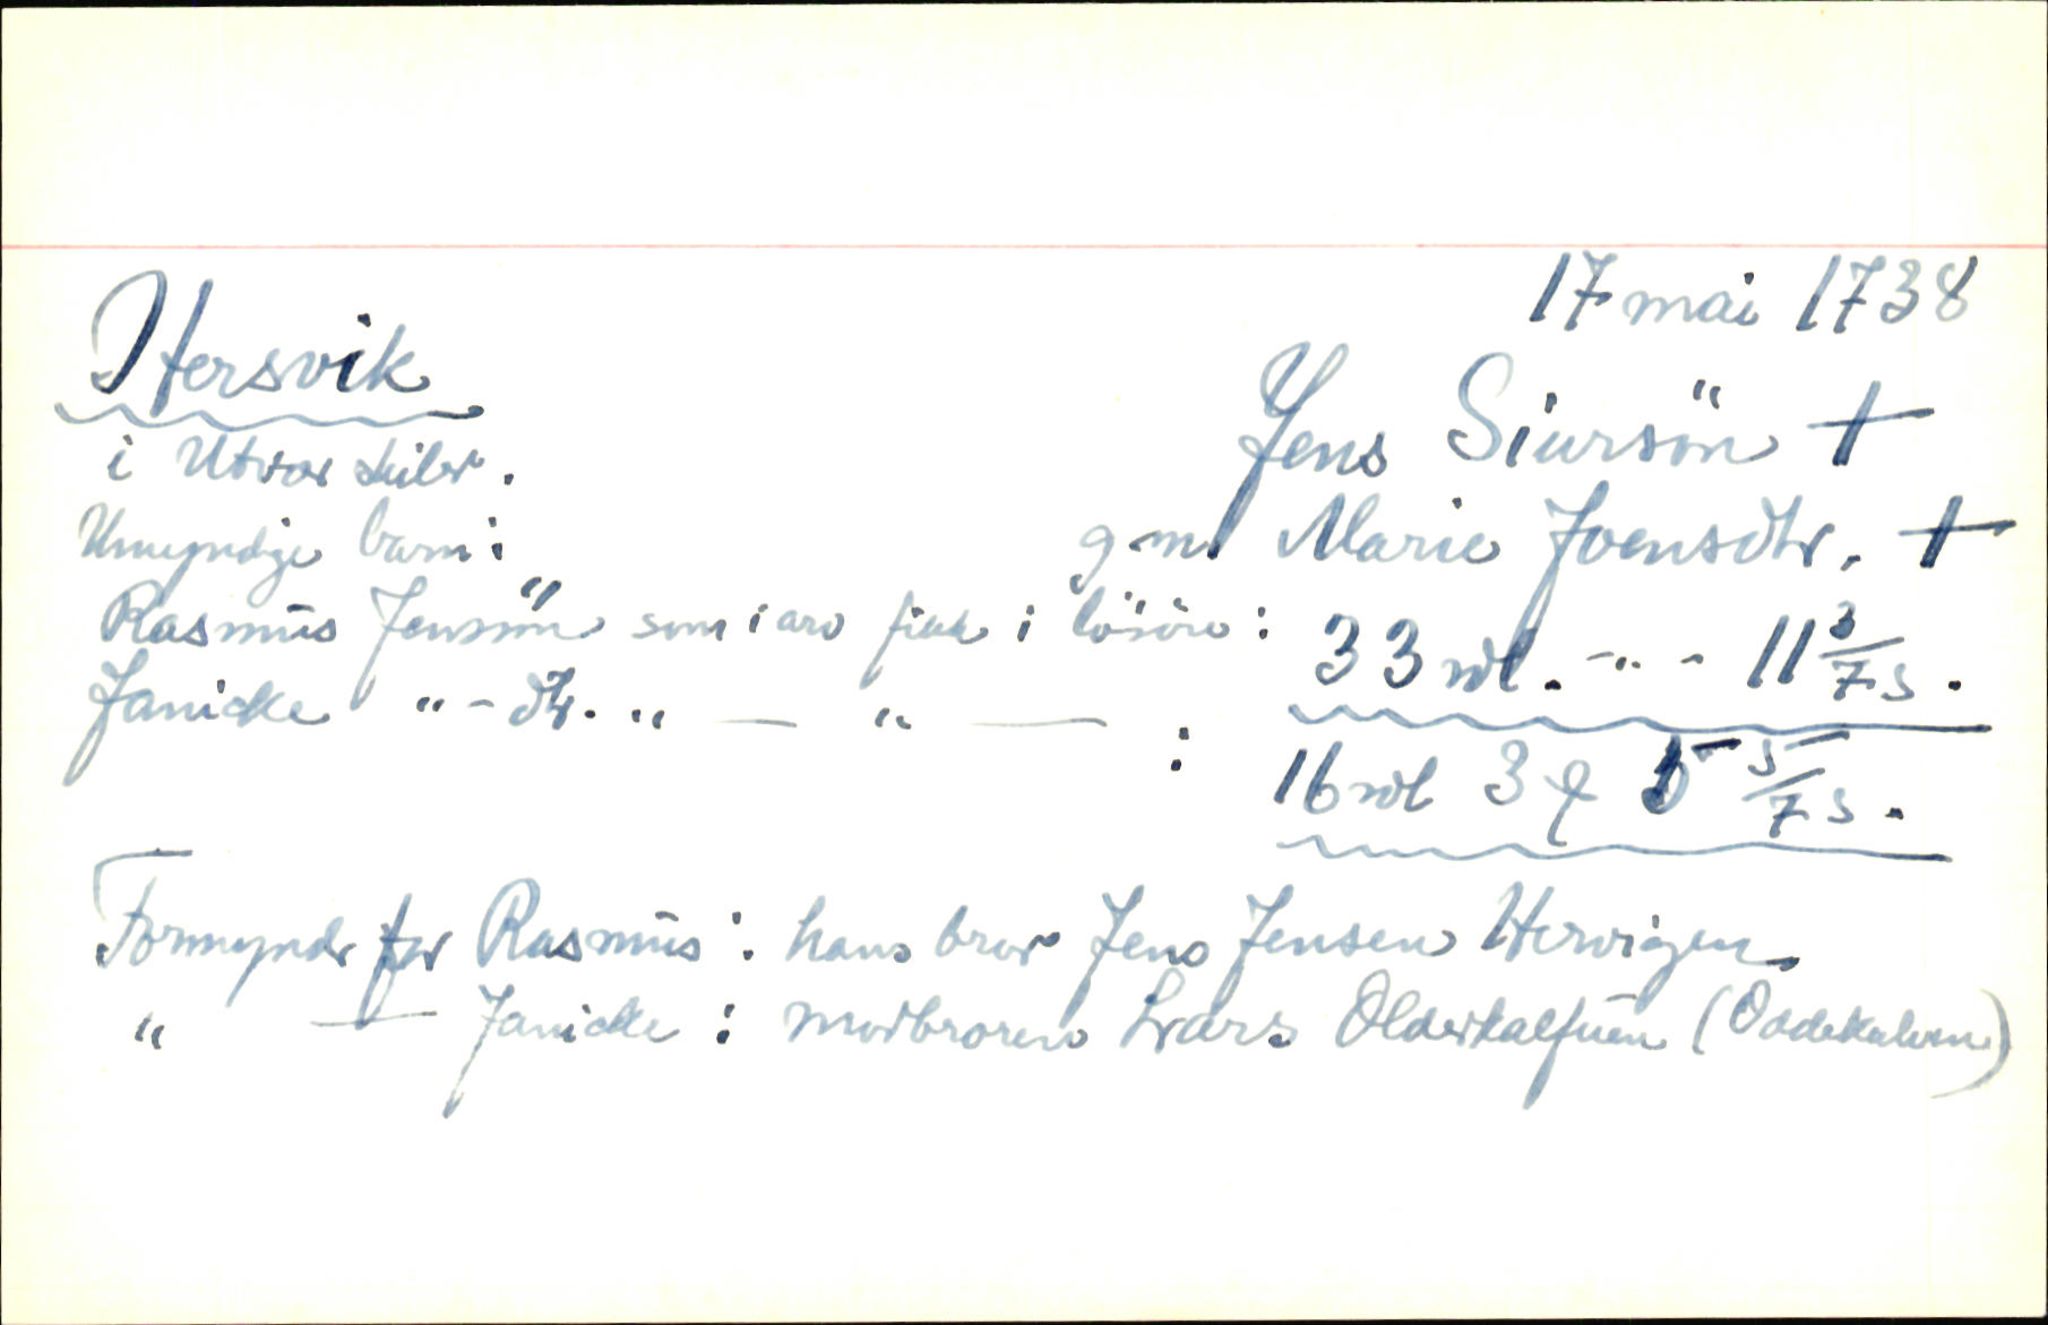 17 mai 1738
Hersvik
Jens Siursön +
i Utvær skibr.
g.m. Marie Joensdtr. +
Umyndige barn:
Rasmus Jensön som i arv fikk i lösöre: 33 rdl. - " - 11 3/7 s.
Janicke " - dtr. " — " — : 16 rdl 3 ꝗ 5 5/7 s.
Formyndr for Rasmus: hans bror Jens Jensen Hervigen
" — Janicke: morbroren Lars Olderkalfuen (Oddekalven)